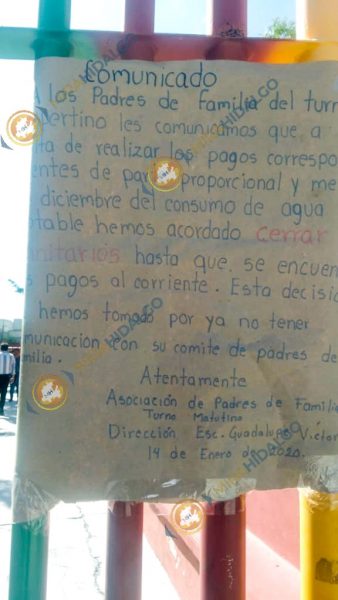 Comunicado
A los Padres de familia del turn
pertino les comunicamos que a
ta de realizar los pagos correspo
entes de par proporcional y me
diciembre del consumo de agua
table hemos acordado cerrar
nitarios hasta que se encuen
s pagos al corriente. Esta decisió
hemos tomado por ya no tener
municación con su comite de padres de
milia.
Atentamente
Asociación de Padres de Famili
Turno Matutino
Dirección Esc. Guadalupe Victor
14 de Enero de 2020.
HIDALGO
HIDALGO
HIDALGO
HIDALGO